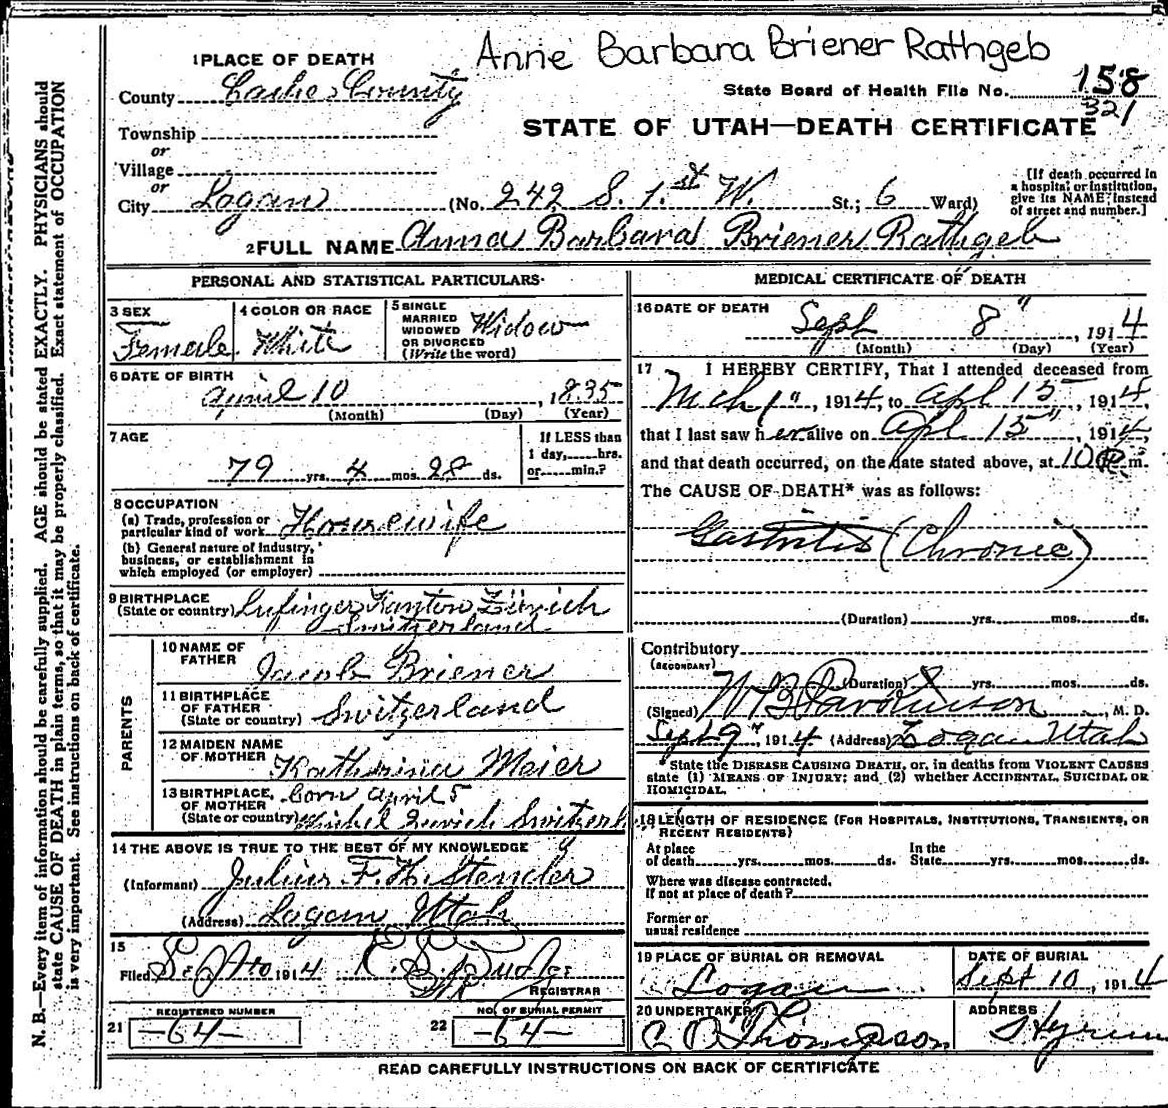 Anne Barbara Briener Rathgeb
1 PLACE OF DEATH
County Cache County
State Board of Health File No. 158
321
Township
STATE OF UTAH—DEATH CERTIFICATE
or
Village
or
City Logan (No. 242 S. 1.st W. St.; 6 Ward)
[If death occurred in
a hospital or institution,
give its NAME instead
of street and number.]
2 FULL NAME Anna Barbara Briener Rathgeb
PERSONAL AND STATISTICAL PARTICULARS
3 SEX
Female
4 COLOR OR RACE
White
5 SINGLE
MARRIED
WIDOWED
OR DIVORCED
(Write the word)
Widow
6 DATE OF BIRTH
April 10, 1835
(Month) (Day) (Year)
7 AGE
79 yrs. 4 mos. 28 ds.
If LESS than
1 day, hrs.
or min.?
8 OCCUPATION
(a) Trade, profession or
particular kind of work Housewife
(b) General nature of industry,
business, or establishment in
which employed (or employer)
9 BIRTHPLACE
(State or country) Lufinger Kanton Zürich
Switzerland
PARENTS
10 NAME OF
FATHER Jacob Briener
11 BIRTHPLACE
OF FATHER
(State or country) Switzerland
12 MAIDEN NAME
OF MOTHER Katharina Meier
13 BIRTHPLACE, born April 5
OF MOTHER
(State or country) Zurich Switzerl
14 THE ABOVE IS TRUE TO THE BEST OF MY KNOWLEDGE
(Informant) Julius F. H. Stender
(Address) Logan Utah
15
Filed 1914
REGISTRAR
REGISTERED NUMBER
21 —64—
NO. OF BURIAL PERMIT
22 —64—
MEDICAL CERTIFICATE OF DEATH
16 DATE OF DEATH
Sept 8", 1914
(Month) (Day) (Year)
17 I HEREBY CERTIFY, That I attended deceased from
Mch 1", 1914, to Apl 15, 1914,
that I last saw her alive on Apl 15", 1914,
and that death occurred, on the date stated above, at 10 P m.
The CAUSE OF DEATH* was as follows:
Gastritis (Chronic)
(Duration) yrs. mos. ds.
Contributory
(SECONDARY)
(Duration) yrs. mos. ds.
(Signed) W B M. D.
Sept 9", 1914 (Address) Logan Utah
*State the DISEASE CAUSING DEATH, or, in deaths from VIOLENT CAUSES
state (1) MEANS OF INJURY; and (2) whether ACCIDENTAL, SUICIDAL OR
HOMICIDAL.
18 LENGTH OF RESIDENCE (FOR HOSPITALS, INSTITUTIONS, TRANSIENTS, OR
RECENT RESIDENTS)
At place
of death yrs. mos. ds.
In the
State yrs. mos. ds.
Where was disease contracted,
if not at place of death?
Former or
usual residence
19 PLACE OF BURIAL OR REMOVAL
Logan
DATE OF BURIAL
Sept 10, 1914
20 UNDERTAKER
Thompson
ADDRESS
Hyrum
READ CAREFULLY INSTRUCTIONS ON BACK OF CERTIFICATE
N. B.—Every item of information should be carefully supplied. AGE should be stated EXACTLY. PHYSICIANS should
state CAUSE OF DEATH in plain terms, so that it may be properly classified. Exact statement of OCCUPATION
is very important. See instructions on back of certificate.